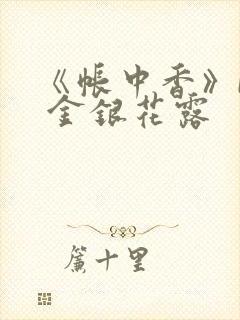 《帐中香》
金银花露
簾十里